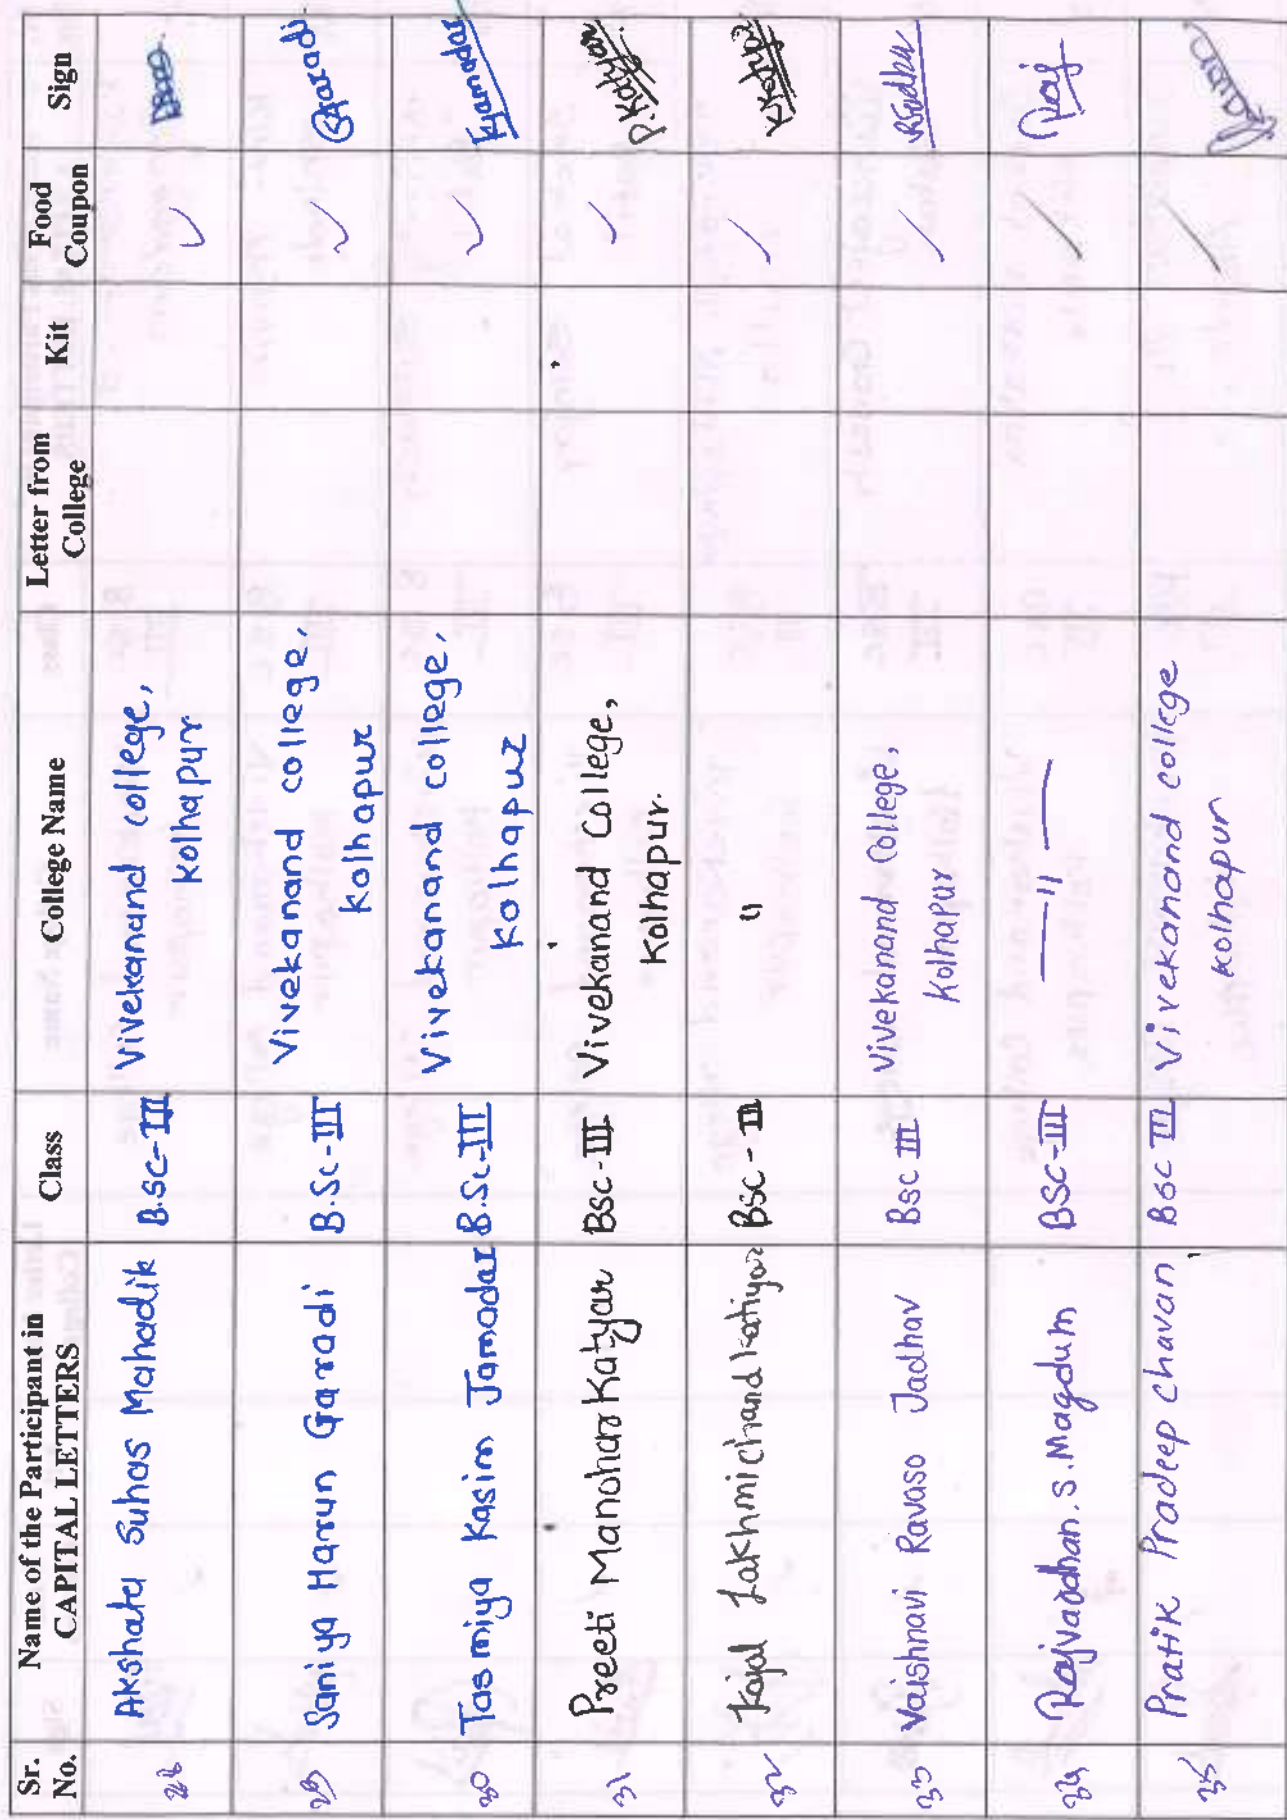 Sr. No. Name of the Participant in CAPITAL LETTERS Class College Name Letter from College Kit Food Coupon Sign
28 Akshata Suhas Mahadik B.Sc-III Vivekanand college, Kolhapur ✓
29 Saniya Harun Garadi B.Sc-III Vivekanand college, Kolhapur ✓ Garadi
30 Tasmiya Kasim Jamadar B.Sc-III Vivekanand college, Kolhapur ✓ Tjamadar
31 Preeti Manohar Katyar BSC-III Vivekanand College, Kolhapur. ✓ P.Katyar
32 Kajal Lakhmichand Katiyar BSC-III " /
33 Vaishnavi Ravaso Jadhav Bsc III Vivekanand College, Kolhapur /
34 Rajvardhan.S.Magdum BSC-III —"— / Raj
35 Pratik Pradeep chavan BSC III Vivekanand college Kolhapur /